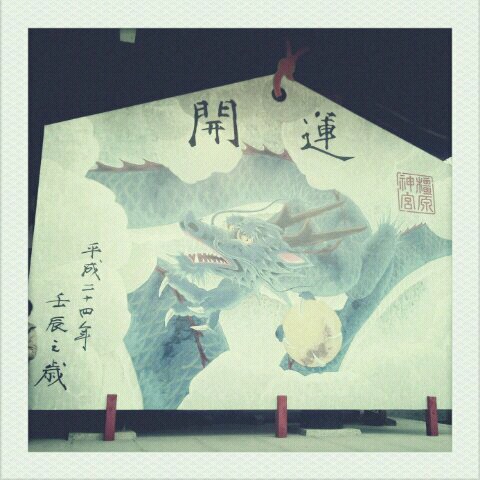 開運
橿原
神宮
平成二十四年
壬辰之歳